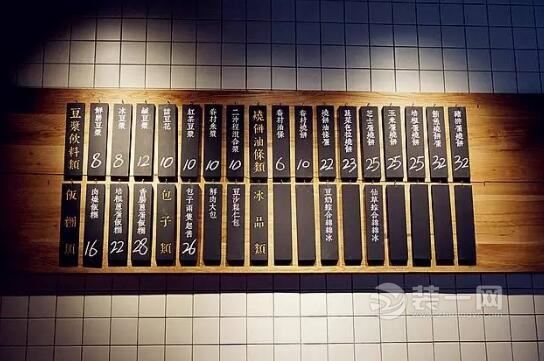 豆漿飲料類
鮮磨豆漿 8
冰豆漿 8
鹹豆漿 12
鹽豆花 10
紅茶豆漿 10
眷村米漿 10
二神程混合漿 10
燒餅油條類
眷村油條 6
眷村燒餅 10
燒餅油條蛋 22
23
芝士蛋燒餅 25
玉米蛋燒餅 25
培根蛋燒餅 25
鮪魚蛋燒餅 32
豬排蛋燒餅 32
飯糰類
肉燥飯糰 16
培根蔥蛋飯糰 22
香腸蔥蛋飯糰 28
包子類
包子兩隻起售 26
鮮肉大包
豆沙鬆仁包
冰品類
豆奶綜合綿綿冰
仙草綜合綿綿冰
装一网